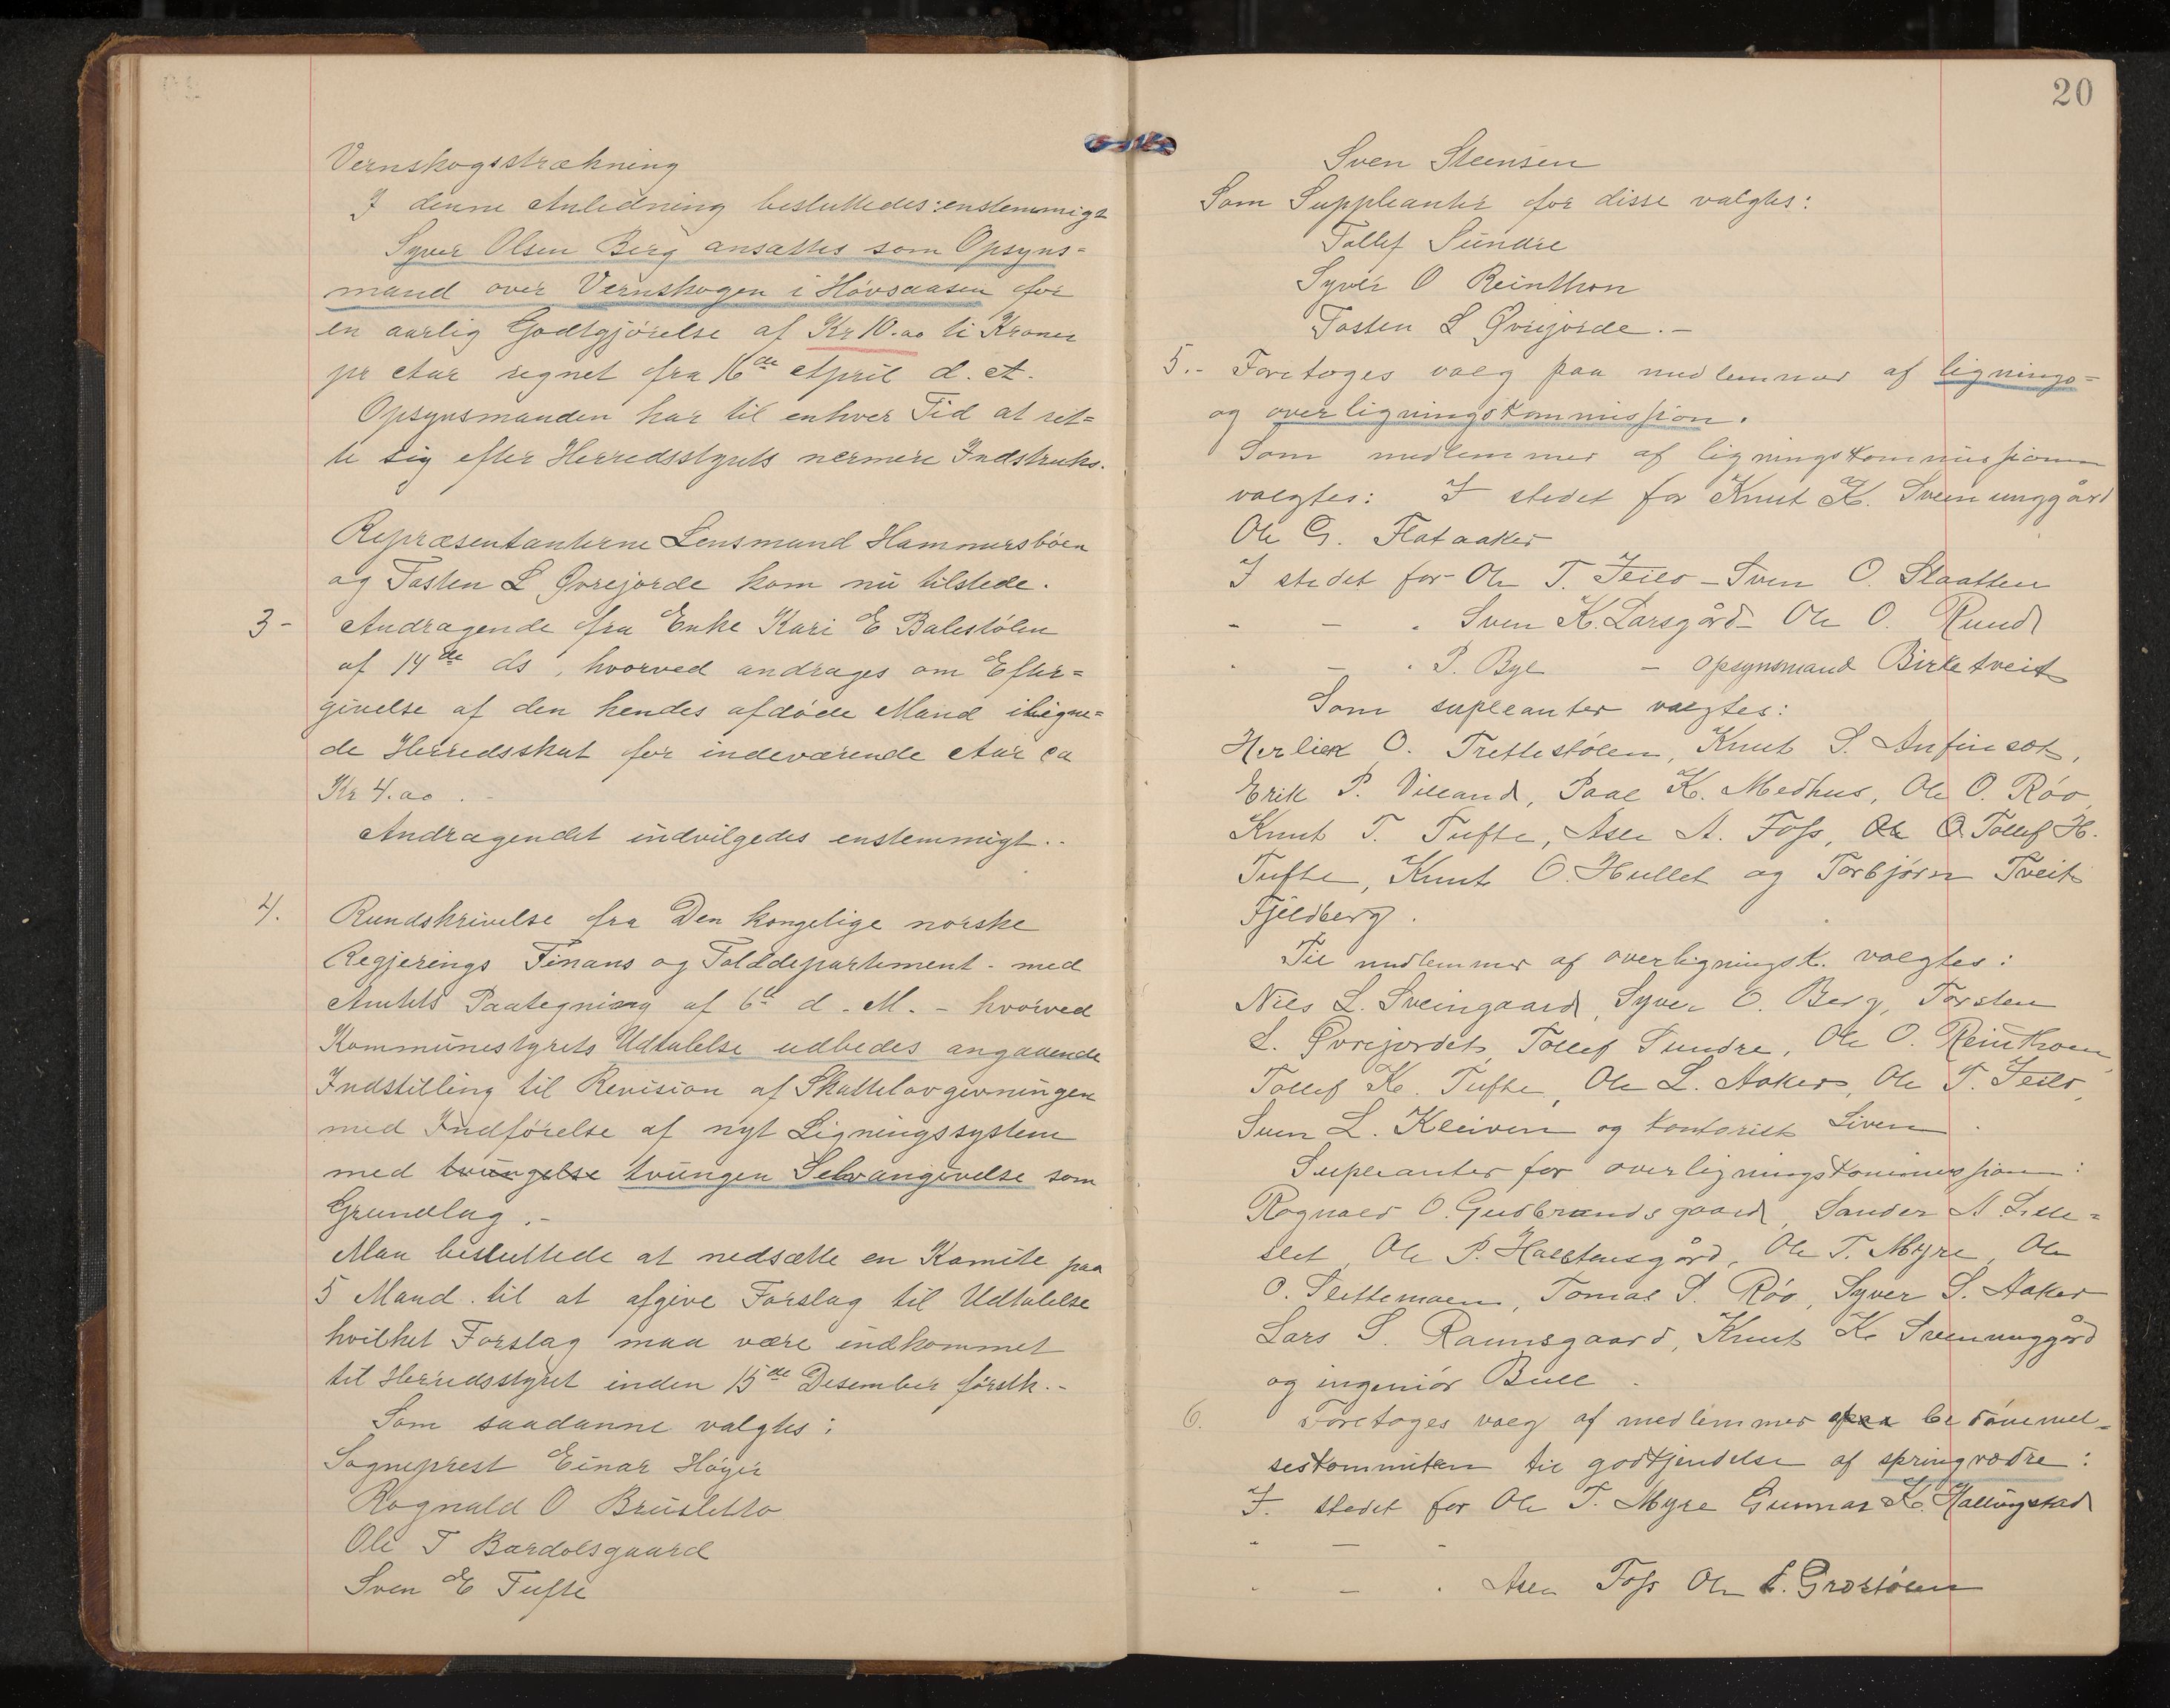 Vernskogsstrækning
I denne Anledning besluttedes: enstemmigt
Syver Olsen Berg ansattes som Opsyns=
mand over Vernskogen i Hövsaasen for
en aarlig Godtgjörelse af Kr 10.00 ti Kroner
pr Aar regnet fra 16de April d. A.
Opsynsmanden har til enhver Tid at ret=
te sig efter Herredsstyrets nermere Indstruks.
Repræsentanterne Lensmand Hammersböen
og Tosten L Øvrejorde kom nu tilstede.
3 - Andragende fra Enke Kari E Balestölen
af 14de ds, hvorved andrages om Efter=
givelse af den hendes afdöde Mand iligne=
de Herredsskat for indeværende Aar ca
Kr 4.00. -
Andragendet indvilgedes enstemmigt. -
4. Rundskrivelse fra Den kongelige norske
Regjerings Finans og Tolddepartement - med
Amtets Paategning af 6te d. M. - hvorved
Kommunestyrets Udtalelse udbedes angaaende
Indstilling til Revision af Skattelovgivningen
med Indförelse af nyt Ligningssystem
med tvungelse tvungen Selvangivelse som
Grundlag. -
Man besluttede at nedsætte en Komite paa
5 Mand til at afgive Forslag til Udtalelse
hvilket Forslag maa være indkommet
til Herredsstyret inden 15de Desember förstk. -
Som saadanne valgtes:
Sogneprest Einar Höyer
Rognald O Brusletto
Ole T Bardolsgaard
Sven E Tufte
20
Sven Steensen
Som Suppleanter for disse valgtes:
Tollef Sundre
Syver O Reinthon
Tosten L Øvrejorde. -
5. - Foretoges valg paa medlemmer af lignings=
og overligningskommission.
Som medlemmer af ligningskommissionen
valgtes: I stedet for Knut K. Svenunggård
Ole G. Flataaker
I stedet for Ole T. Jeilo - Sven O. Slaatten
" — " Sven K. Larsgård - Ole O. Rund
" — " P. Bye — opsynsmand Birketveit
Som supleanter valgtes:
Herlick O. Trettestölen, Knut S. Anfinset,
Erik P. Villand, Paal K. Medhus, Ole O. Röo,
Knut T. Tufte, Asle A. Foss, Ole O. Tollef H.
Tufte, Knut O. Hullet og Torbjörn Tveit
Fjeldberg.
Til medlemmer af overligningsk. valgtes:
Nils L. Sveingaard, Syver O. Berg, Torsten
L. Øvrejordet, Tollef Sundre, Ole O. Reinthoen,
Tollef K. Tufte, Ole L. Aaker, Ole T. Jeilo,
Sven L. Kleiven og kontorist Liven.
Supleanter for overligningskommissjonen:
Rognald O. Gudbrandsgaard, Sander A Lille=
slet, Ole P. Hallstensgård, Ole T. Myre, Ole
O. Slettemoen, Tomas P. Röo, Syver S. Aaker
Lars S. Raunsgaard, Knut K Svenunggård
og ingeniör Bull.
6. Foretoges valg af medlemmer paa bedömmel=
seskommiteen til godkjendelse af springvædre:
I. stedet for Ole T. Myre Gunnar K. Hallingstad
" — "
" — " Asle Foss Ole L. Grostölen